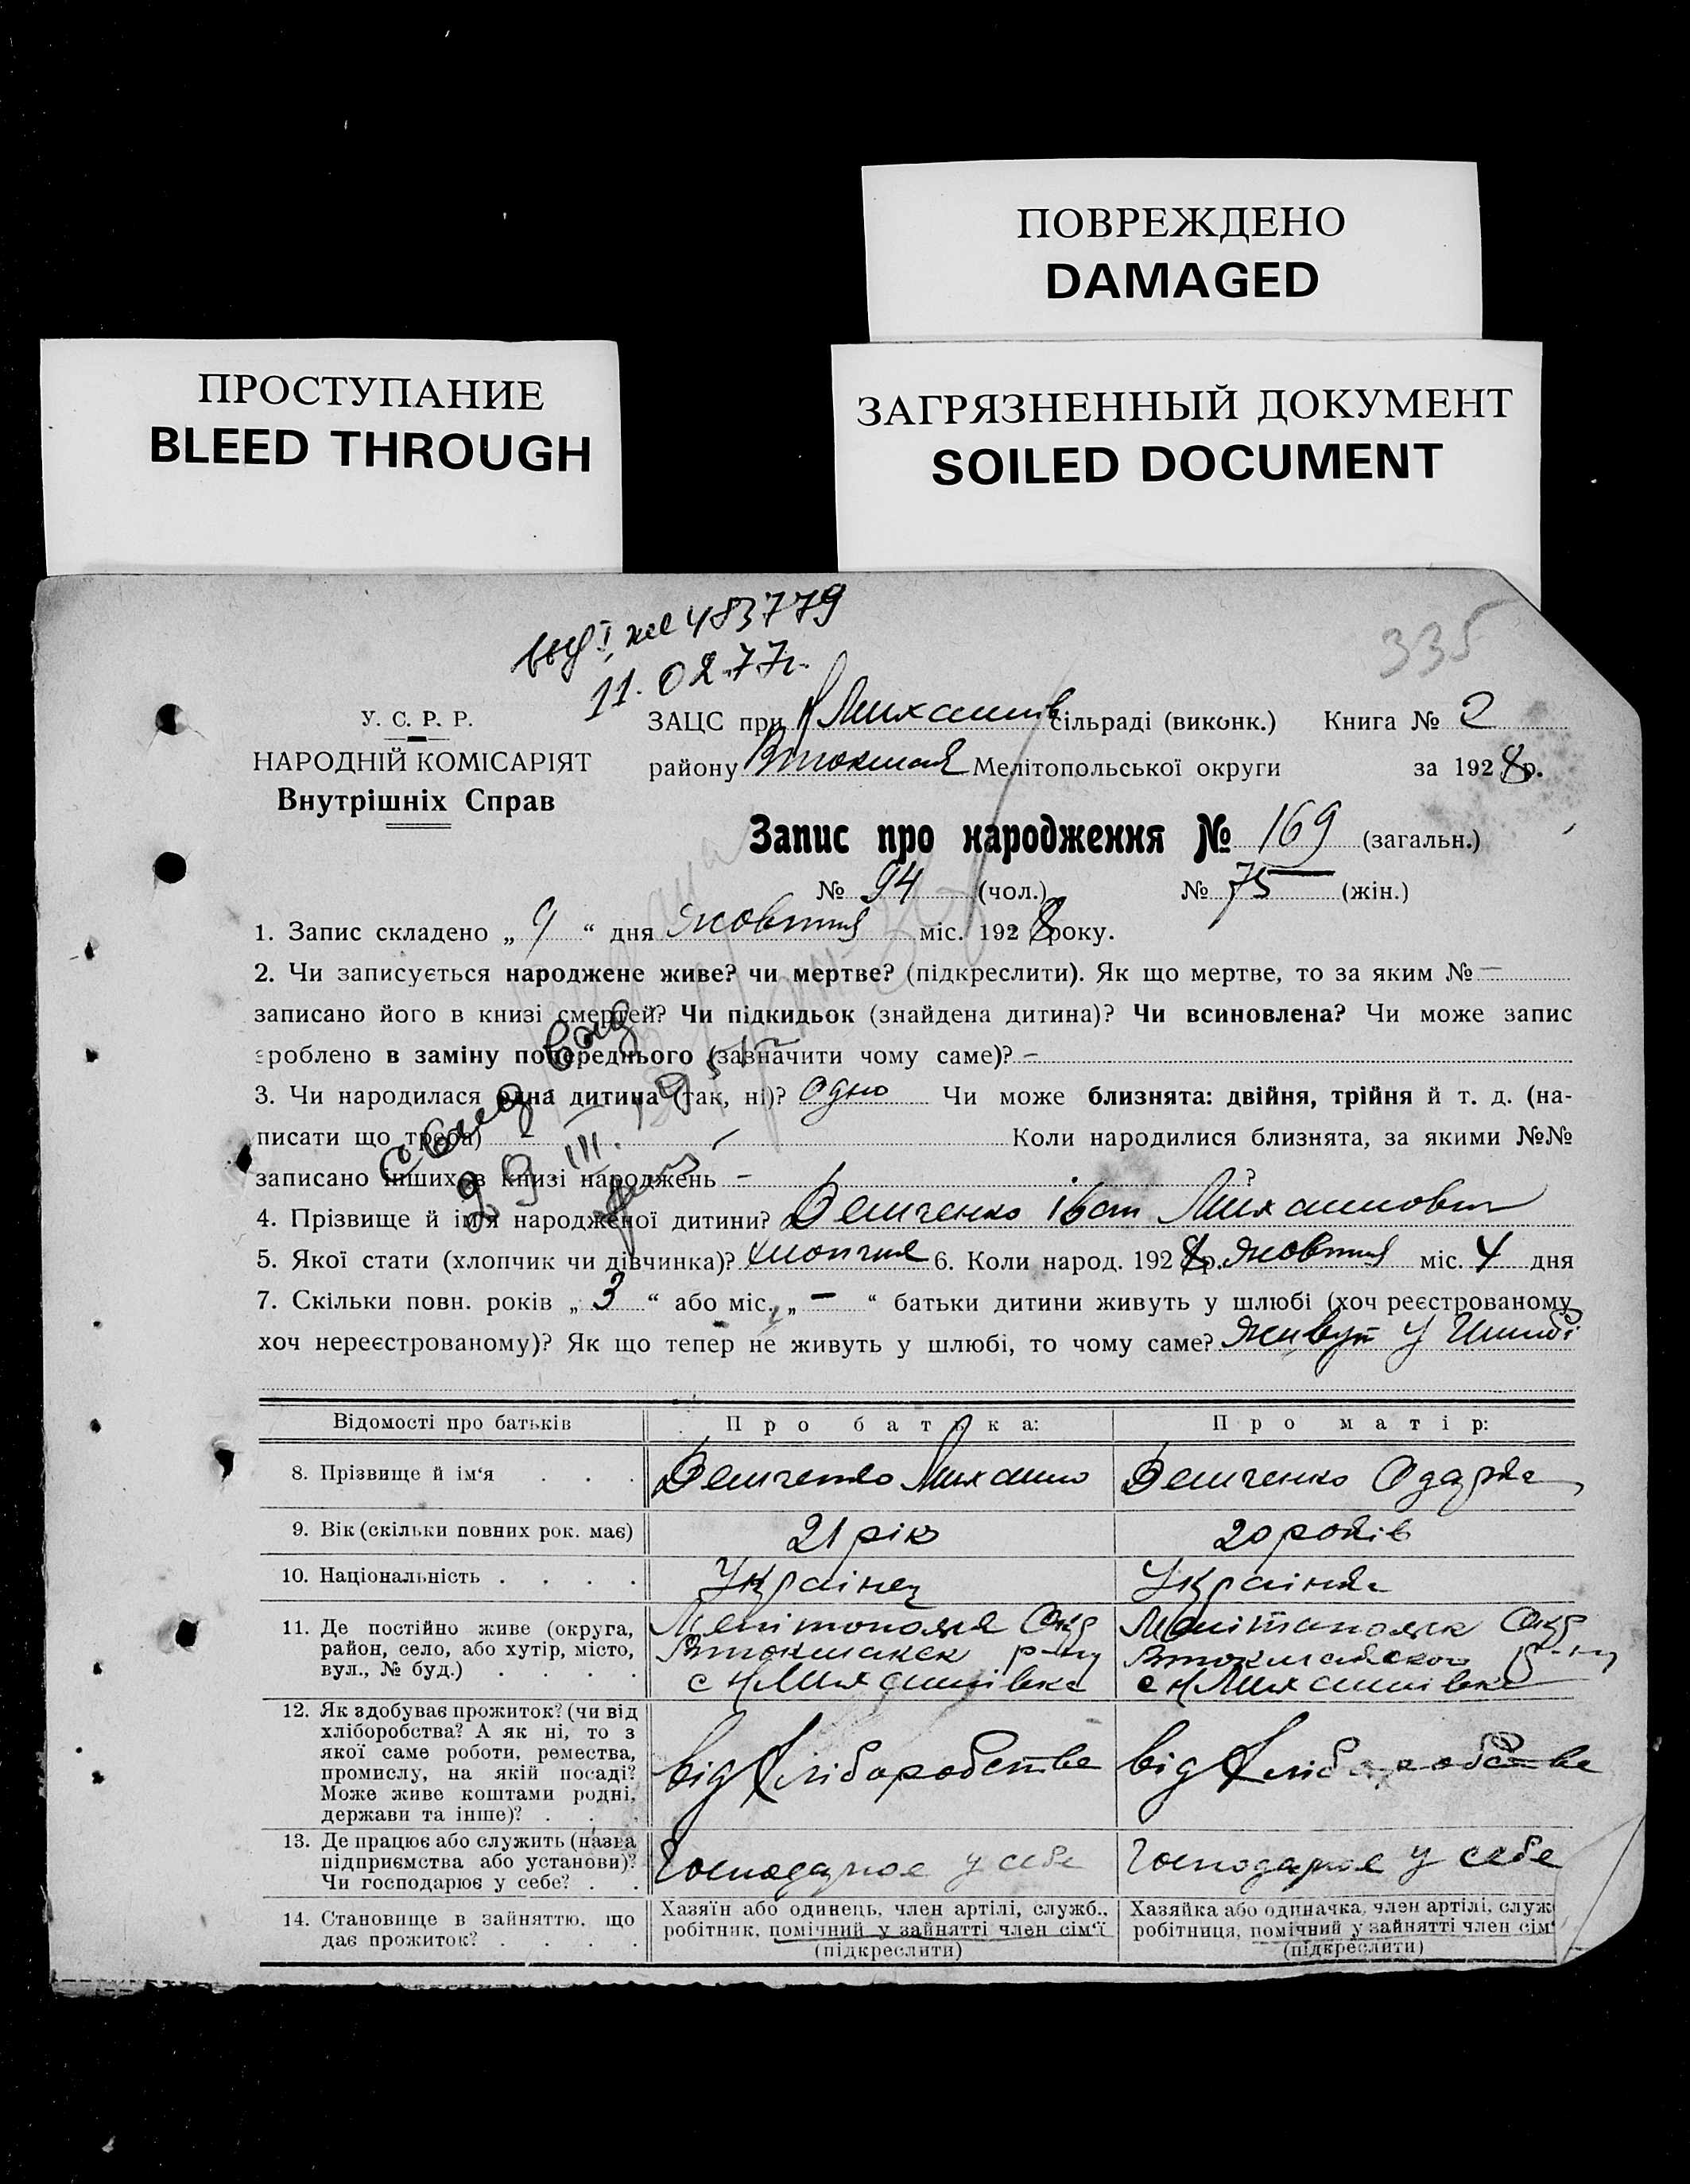 ПОВРЕЖДЕНО
DAMAGED
ПРОСТУПАНИЕ
BLEED THROUGH
ЗАГРЯЗНЕННЫЙ ДОКУМЕНТ
SOILED DOCUMENT
№ 483779
11.02.77г.
335
У. С. Р. Р.
НАРОДНІЙ КОМІСАРІЯТ
Внутрішніх Справ
ЗАЦС при Н Михайлів сільраді (виконк.) Книга № 2
району Втокмац Мелітопольської округи за 1928 р.
Запис про народження № 169 (загальн.)
№ 94 (чол.) № 75 (жін.)
1. Запис складено „ 9 “ дня жовтня міс. 1928 року.
2. Чи записується народжене живе? чи мертве? (підкреслити). Як що мертве, то за яким № —
записано його в книзі смертей? Чи підкидьок (знайдена дитина)? Чи всиновлена? Чи може запис
зроблено в заміну попереднього (зазначити чому саме)? —
3. Чи народилася одна дитина (так, ні)? Одно Чи може близнята: двійня, трійня й т. д. (на-
писати що треба) — Коли народилися близнята, за якими №№
записано інших в книзі народжень — ?
4. Прізвище й ім'я народженої дитини? Демченко Іван Михайлович
5. Якої стати (хлопчик чи дівчинка)? хлопчик 6. Коли народ. 1928 р. жовтня міс. 4 дня
7. Скільки повн. років „ 3 “ або міс. „ — “ батьки дитини живуть у шлюбі (хоч реєстрованому
хоч нереєстрованому)? Як що тепер не живуть у шлюбі, то чому саме? живут у Шлюбі
Відомості про батьків Про батька: Про матір:
8. Прізвище й ім‘я . . . Демченко Михайло Демченко Одарка
9. Вік (скільки повних рок. має) 21 рік 20 років
10. Національність . . . . Українец Українка
11. Де постійно живе (округа,
район, село, або хутір, місто,
вул., № буд.) . . . .
Мелітопольск Окр
Втокмакск р-ну
с Н Михайлівка
Мелітопольск Окр
Втокмакского р-ну
с Н Михайлівка
12. Як здобуває прожиток? (чи від
хліборобства? А як ні, то з
якої саме роботи, ремества,
промислу, на якій посаді?
Може живе коштами родні,
держави та інше)? . . .
від Хліборобства
від Хліборобства
13. Де працює або служить (назва
підприємства або установи)?
Чи господарює у себе? . .
Господарює у себе
Господарює у себе
14. Становище в зайняттю, що
дає прожиток? . . . .
Хазяїн або одинець, член артілі, служб.,
робітник, помічний у зайнятті член сім‘ї
(підкреслити)
Хазяйка або одиначка, член артілі, служ
робітниця, помічний у зайнятті член сім‘
(підкреслити)